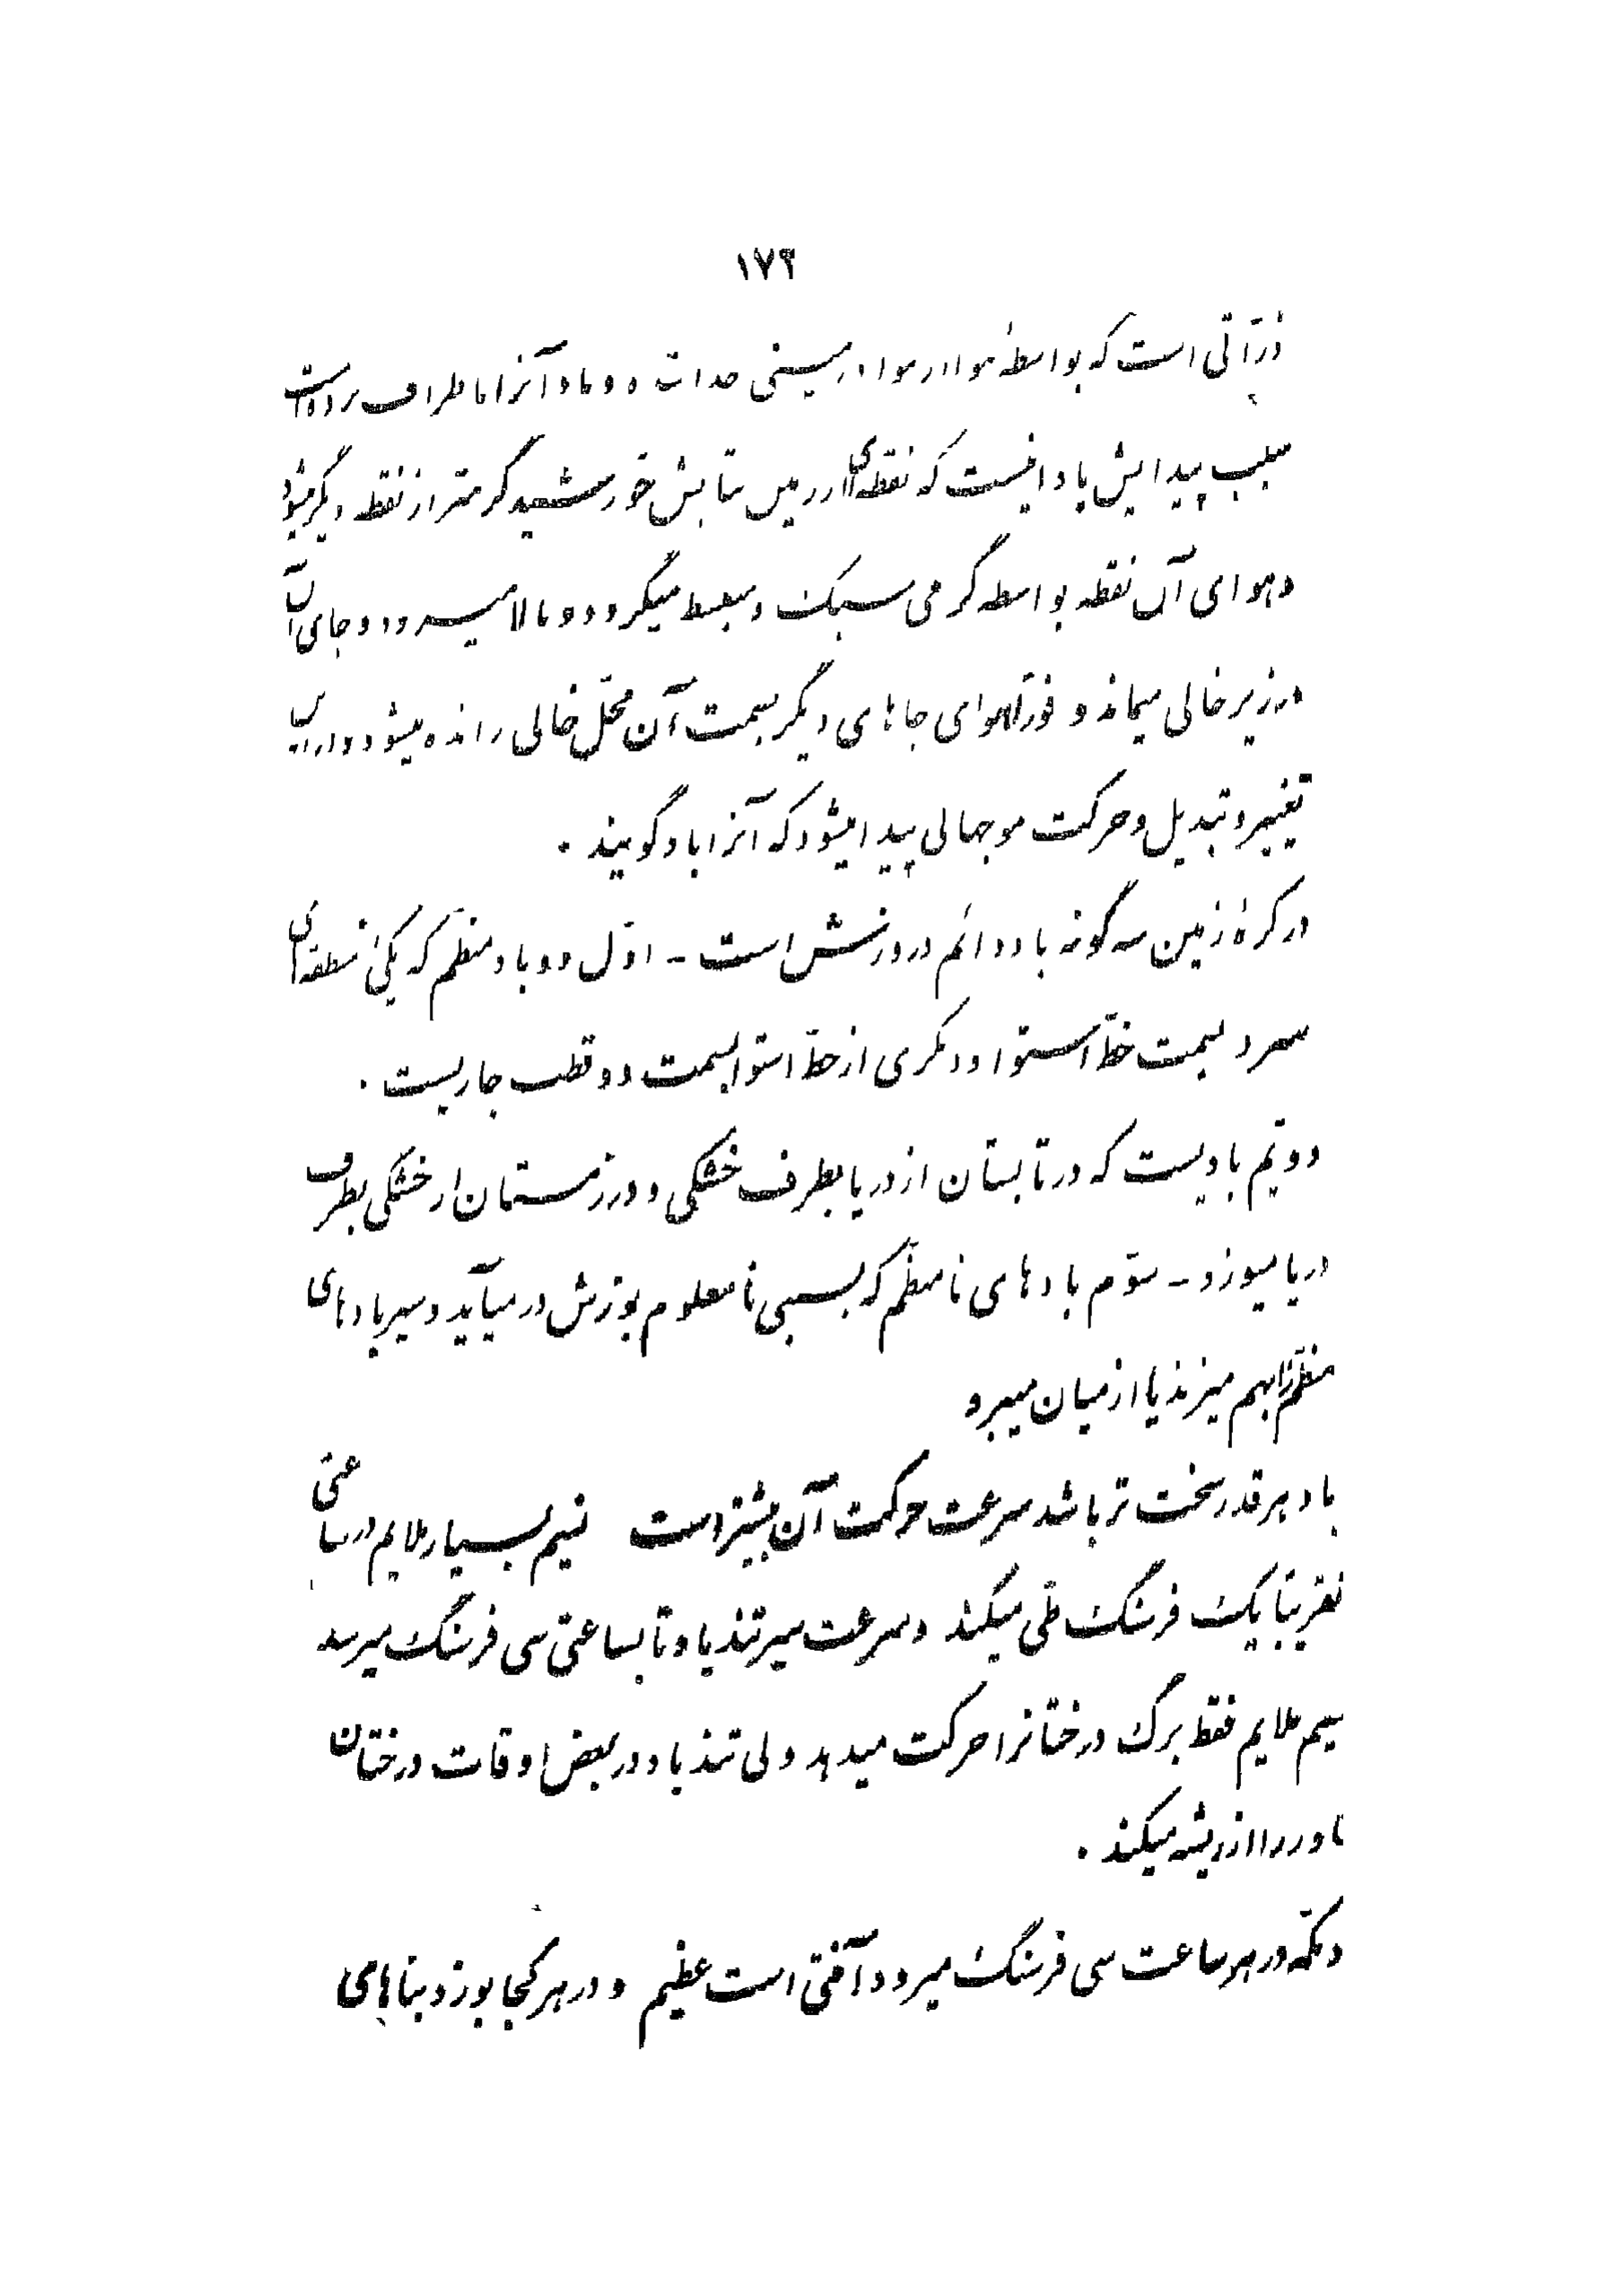 ۱۷۶
ذرّاتی است که بواسطهٔ هوا از هوا در سینی جدا شده و باد آنرا باطراف برده است
سبب پیدایش باد اینست که نقطه‌ای از زمین بتابش خورشید گرمتر از نقطه دیگر میشود
و هوای آن نقطه بواسطه گرمی سبک و منبسط میگردد و بالا میرود و جای آن
در زیر خالی میماند و فوراً هوای جاهای دیگر بسمت آن محلّ خالی رانده میشود و از این
تغییر و تبدیل و حرکت موجهائی پیدا میشود که آنرا باد گویند .
در کرهٔ زمین سه گونه باد دائم در وزش است - اوّل دو باد منظّم که یکی از منطقه‌ای
سرد بسمت خطّ استوا و دیگری از خطّ استوا بسمت دو قطب جاریست .
دویّم بادیست که در تابستان از دریا بطرف خشکی و در زمستان از خشکی بطرف
دریا میوزد - سوّم بادهای نامنظّم که بسببی نامعلوم بوزش در میآید و سیر بادهای
منظّم را بهم میزند یا از میان میبرد
باد هر قدر سخت تر باشد سرعت حرکت آن بیشتر است نسیم بسیار ملایم در ساعتی
تقریباً یک فرسنگ طی میکند و سرعت سیر تندباد تا بساعتی سی فرسنگ میرسد
نسیم ملایم فقط برگ درختانرا حرکت میدهد ولی تندباد در بعض اوقات درختان
تناور را از ریشه میکند .
دیگه در هر ساعت سی فرسنگ میرود آفتی است عظیم و در هر کجا بوزد بناهای